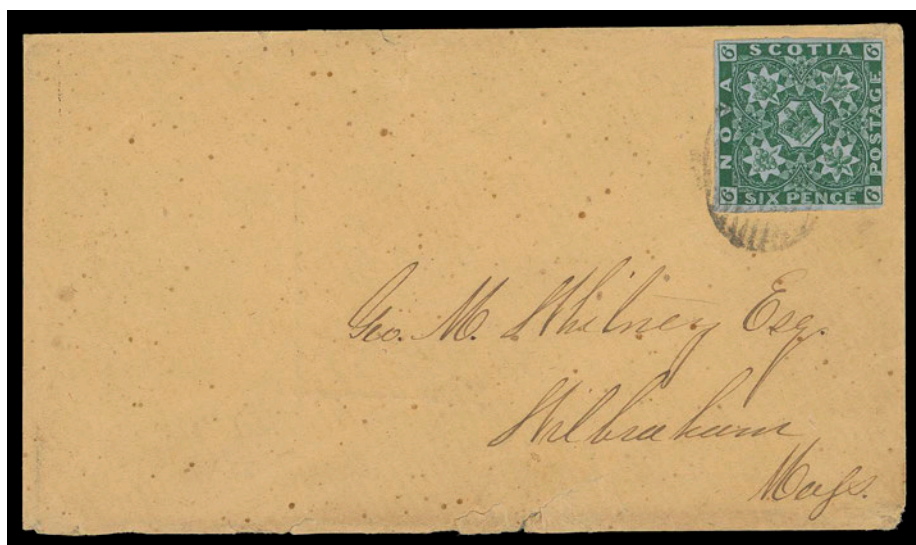 6 SCOTIA 6
NOVA
POSTAGE
6 SIX PENCE 6
Geo. M. Whitney Esq.
Wilbraham
Mass.